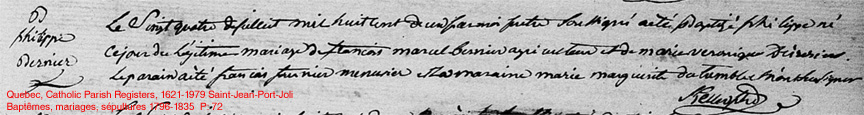 B
Philippe
Bernier
Le Vingt quatre de juillet mil huit cent deux par moi prêtre soussigné a été baptizé philippe né
ce jour du légitime mariage de francois marcel bernier agriculteur et de marie veronique
Le parain a été francois fournier menusier et la maraine marie marguerite qui n'ont sçu signer
Quebec, Catholic Parish Registers, 1621-1979 Saint-Jean-Port-Joli
Baptêmes, mariages, sépultures 1796-1835 P.72